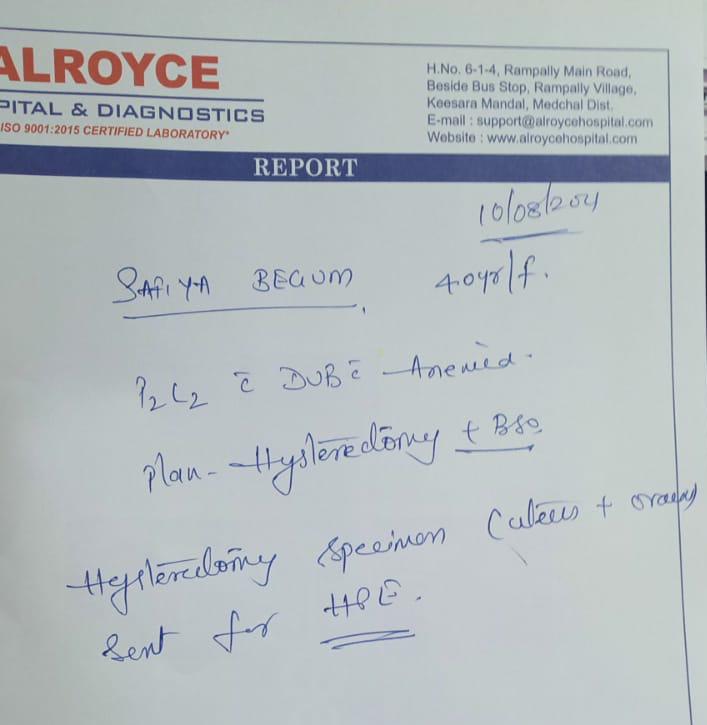 ALROYCE
PITAL & DIAGNOSTICS
ISO 9001:2015 CERTIFIED LABORATORY*
H.No. 6-1-4, Rampally Main Road,
Beside Bus Stop, Rampally Village,
Keesara Mandal, Medchal Dist.
E-mail : support@alroycehospital.com
Website : www.alroycehospital.com
REPORT
10/08/204
SAFIYA BEGUM, 40yr/f.
P2L2 c̄ DUB c̄
Plan - Hysterectomy + BSO
Hysterectomy Specimen (uterus + ovary)
Sent for HPE.